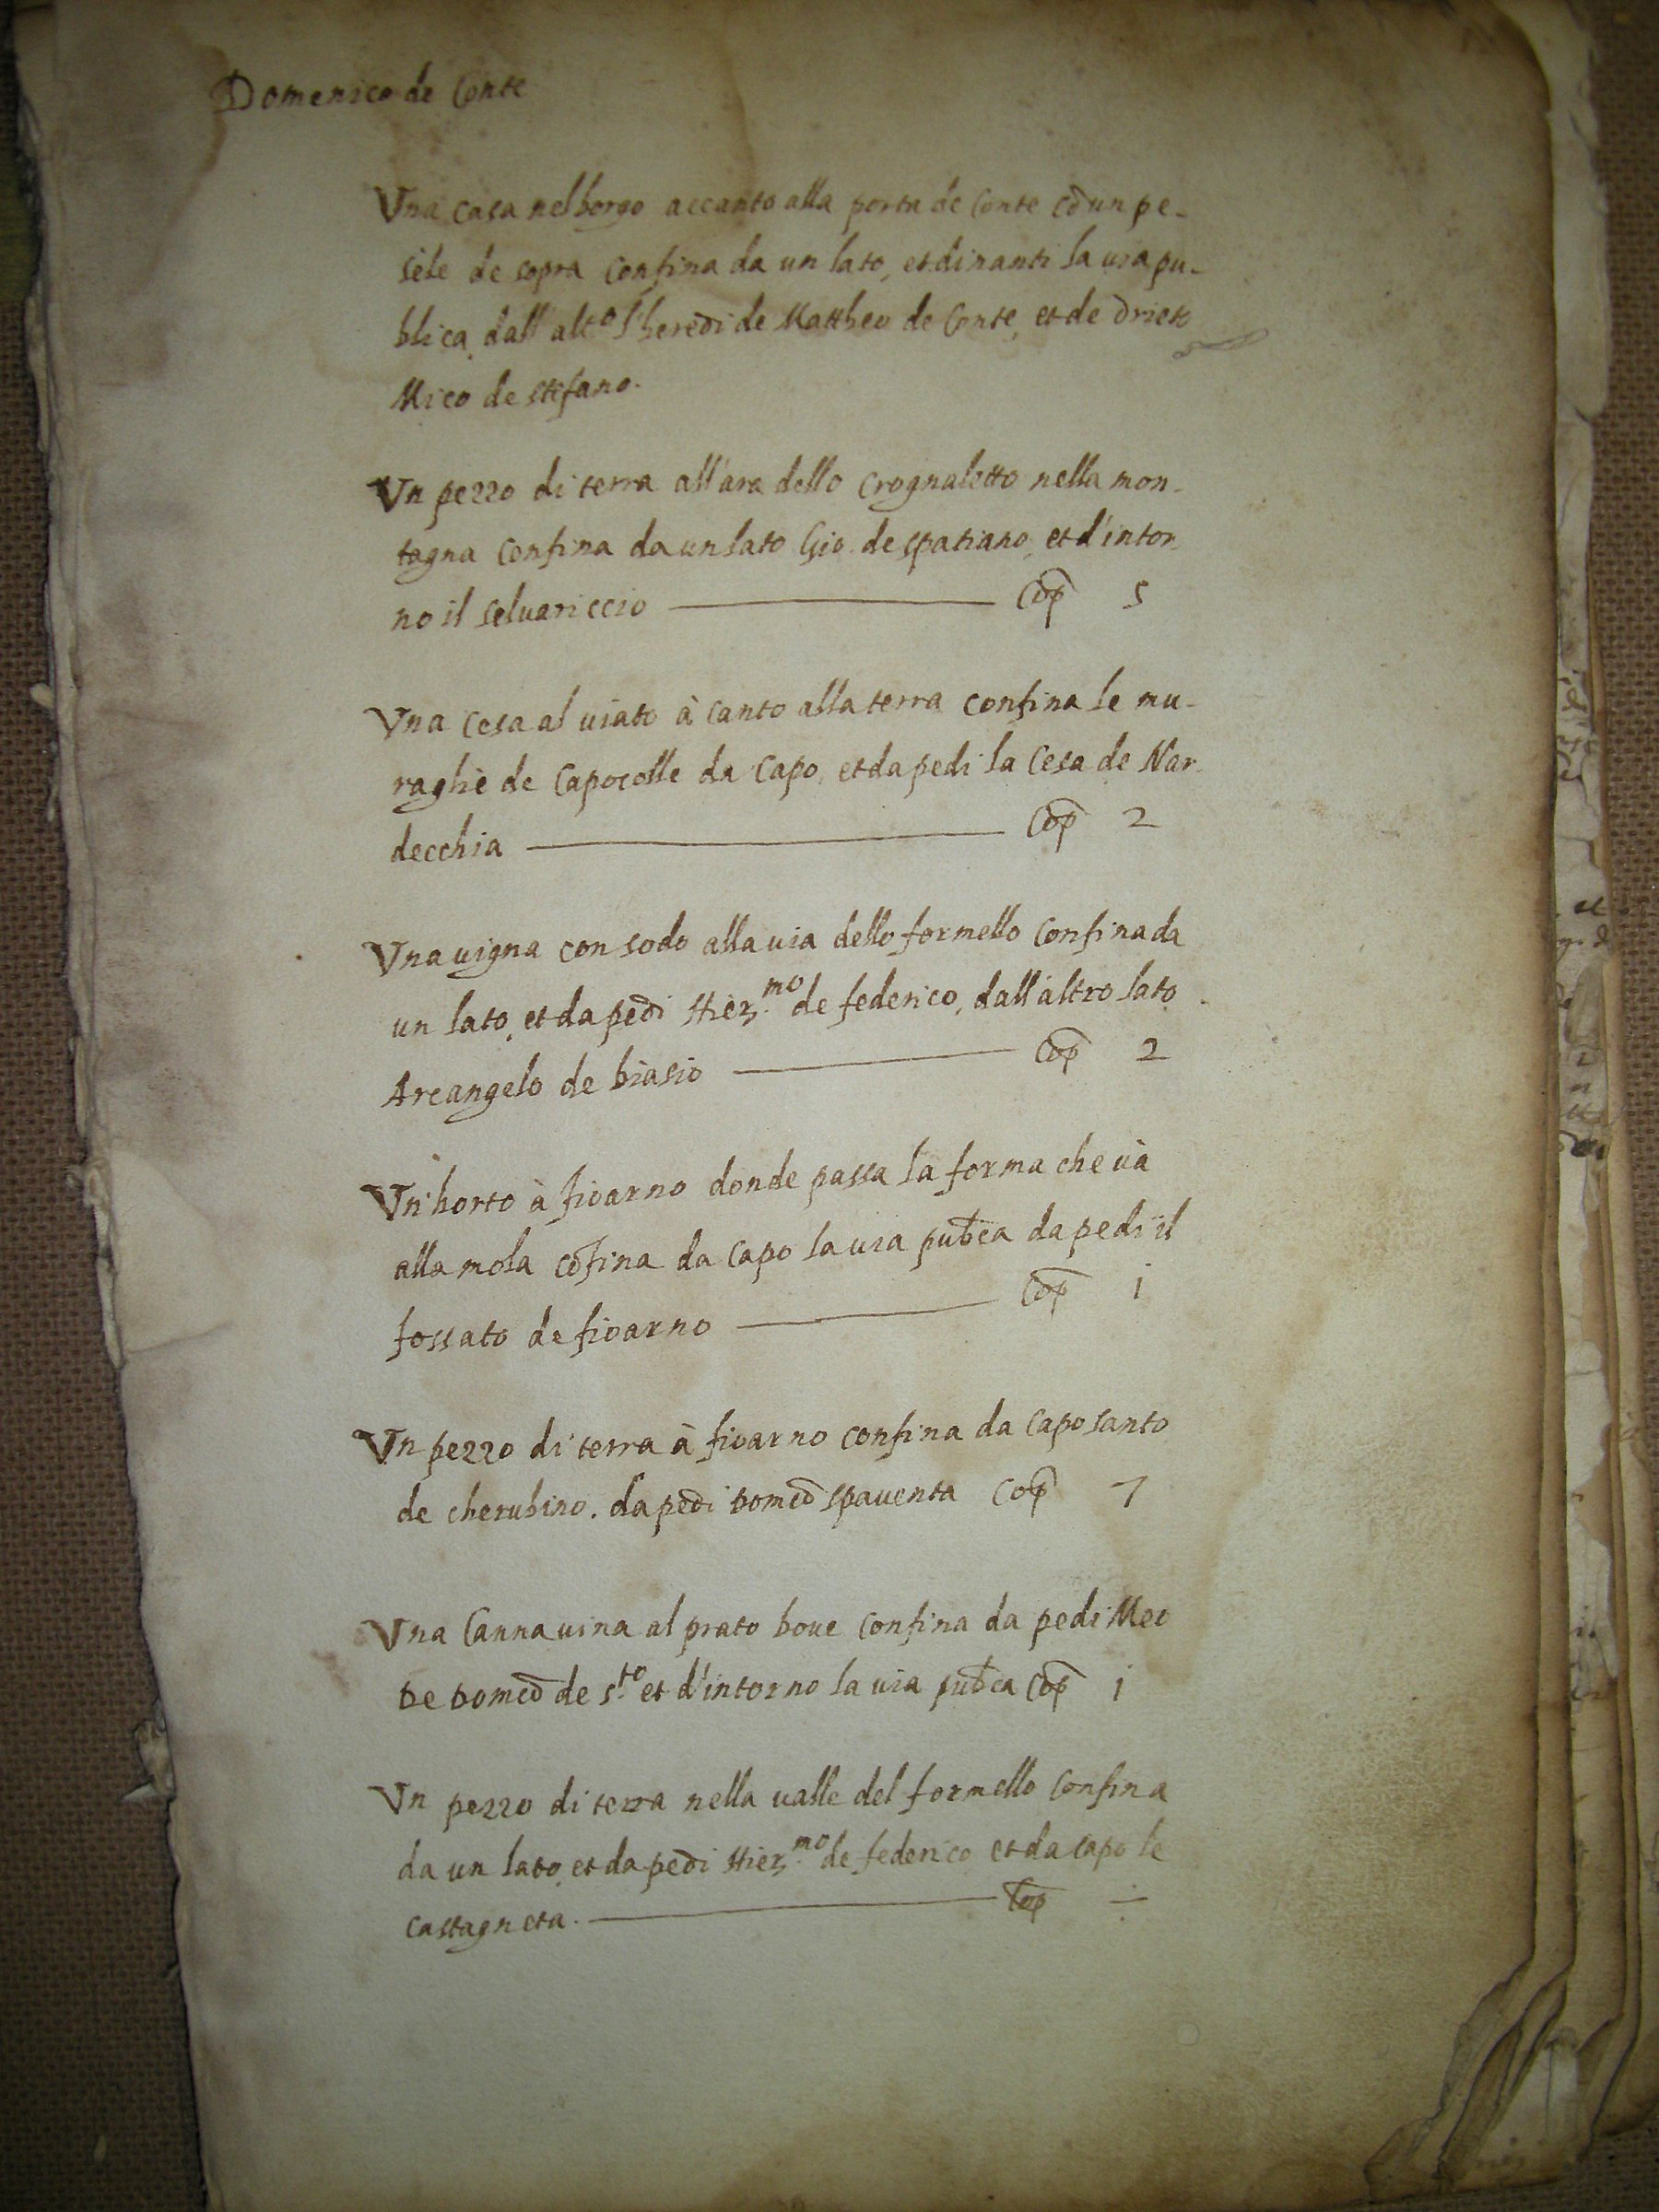 Domenico de Conte
Una casa nel borgo accanto alla porta de Conte cō un pe-
sèle de sopra confina da un lato, et dinanti la via pu-
blica, dall'alt.º l'heredi de Mattheo de Conte, et de drieto
Mico de stefano.
Un pezzo di terra all'ara dello Crognaletto nella mon-
tagna confina da un lato Gio. de spatiano, et d'intor-
no il selvariccio Cop̄ 5
Una cesa al viato à canto alla terra confina le mu-
raghe de Capocolle da Capo, et da pedi la Cesa de Nar-
decchia Cop̄ 2
Una vigna con sodo alla via dello formello confina da
un lato, et da pedi Hier.mo de federico, dall'altro lato
Arcangelo de biasio Cop̄ 2
Un'horto à fioarno donde passa la forma che và
alla mola cōfina da capo la via pub̄ca da pedi il
fossato de fioarno Cop̄ i
Un pezzo di terra à fioarno confina da capo santo
de cherubino. da pedi Domcō spaventa Cop̄ 7
Una Cannavina al prato bove confina da pedi Meo
de Domcō de s.to et d'intorno la via pub̄ca Cop̄ i
Un pezzo di terra nella valle del formello confina
da un lato, et da pedi Hier.mo de federico et da capo le
castagneta. Cop̄ ÷